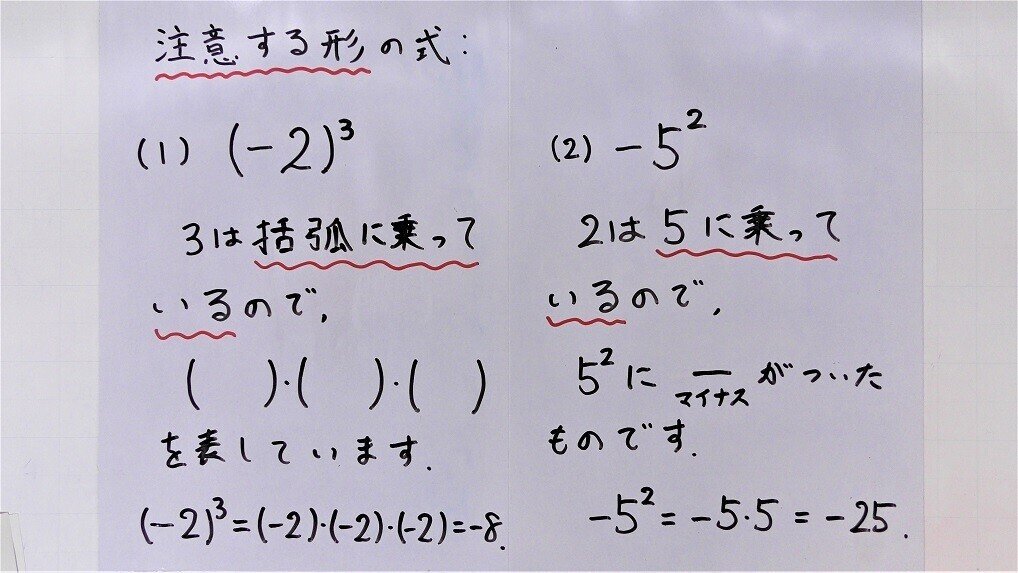 注意する形の式:
(1) (-2)³
3は括弧に乗って
いるので,
(  )·(  )·(  )
を表しています.
(-2)³=(-2)·(-2)·(-2)=-8.
(2) -5²
2は5に乗って
いるので,
5²に ー がついた
マイナス
ものです.
-5² = -5·5 = -25.